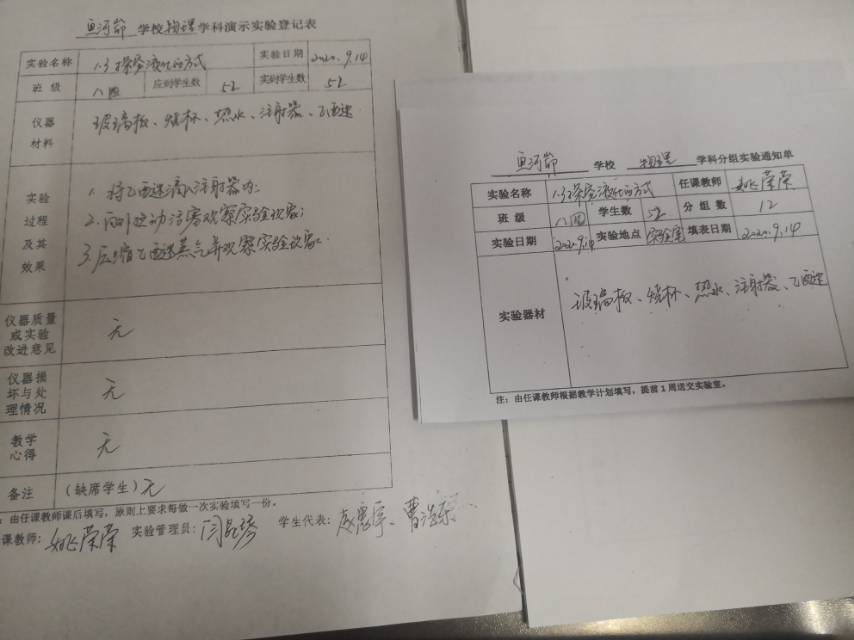 鱼河峁 学校 物理 学科演示实验登记表
实验名称 1.3探究液化的方式 实验日期 2020.9.14
班级 八四 应到学生数 52 实到学生数 52
仪器
材料
玻璃板、烧杯、热水、注射器、乙醚
实验
过程
及其
效果
1. 将乙醚滴入注射器内;
2. 向外拉动活塞观察实验现象;
3. 压缩乙醚蒸气并观察实验现象.
仪器质量
或实验
改进意见
无
仪器损
坏与处
理情况
无
教学
心得
无
备注 (缺席学生) 无
:由任课教师课后填写,原则上要求每做一次实验填写一份。
课教师: 姚荣荣 实验管理员: 学生代表:
鱼河峁 学校 物理 学科分组实验通知单
实验名称 1.3探究液化的方式 任课教师 姚荣荣
班级 八四 学生数 52 分组数 12
实验日期 2020.9.14 实验地点 实验室 填表日期 2020.9.14
实验器材 玻璃板、烧杯、热水、注射器、乙醚
注:由任课教师根据教学计划填写,提前1周送交实验室。